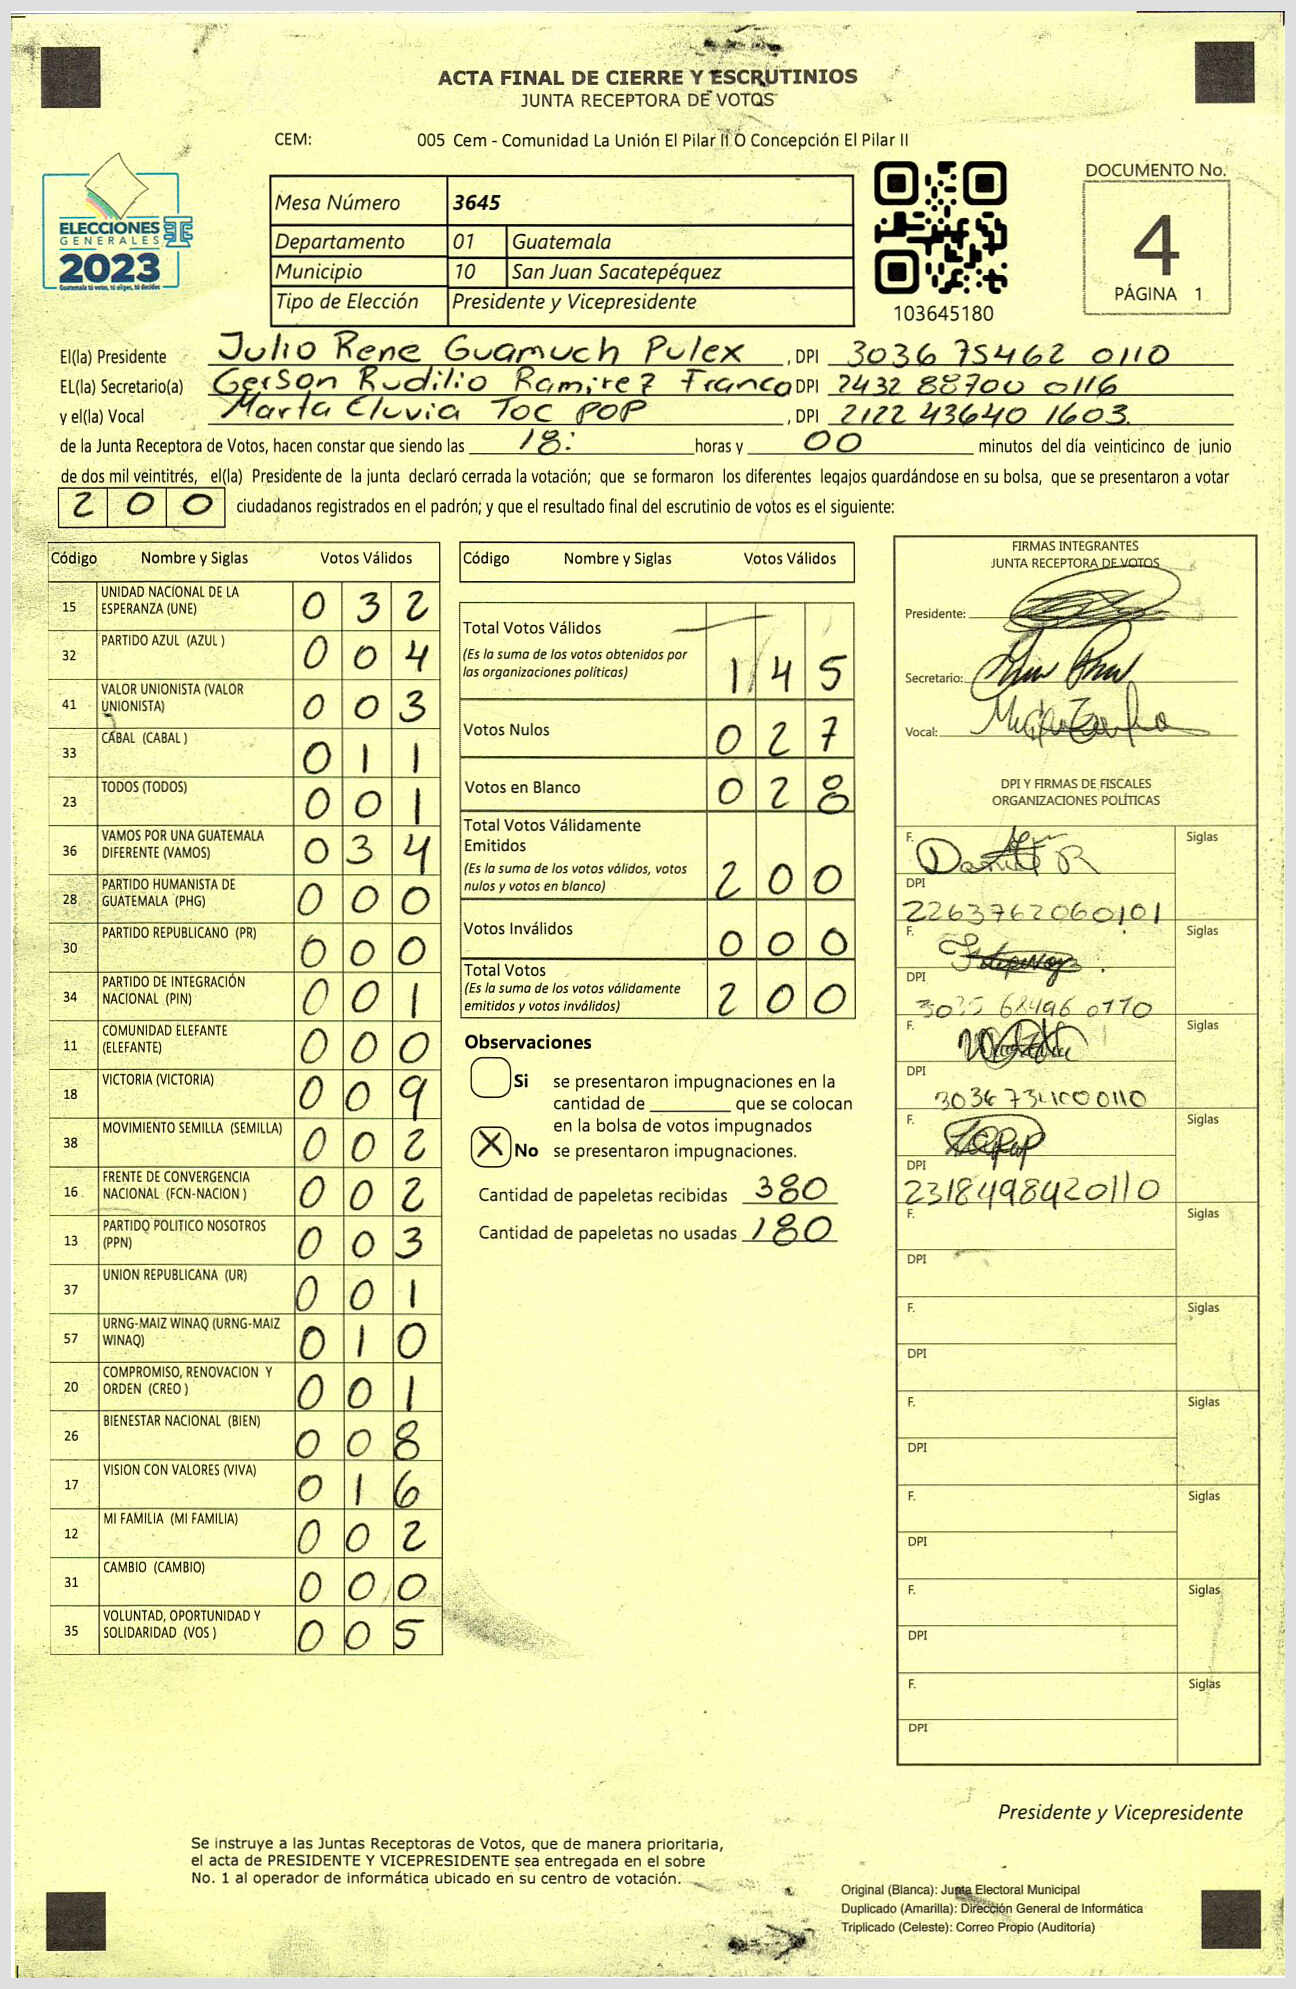 ACTA FINAL DE CIERRE Y ESCRUTINIOS
JUNTA RECEPTORA DE VOTOS
CEM: 005 Cem - Comunidad La Unión El Pilar II O Concepción El Pilar II
ELECCIONES
GENERALES
2023
Guatemala tú votas, tú eliges, tú decides
Mesa Número 3645
Departamento 01 Guatemala
Municipio 10 San Juan Sacatepéquez
Tipo de Elección Presidente y Vicepresidente
103645180
DOCUMENTO No.
4
PÁGINA 1
El(la) Presidente Julio Rene Guamuch Pulex , DPI 3036 75462 0110
EL(la) Secretario(a) Gerson Rudilio Ramirez Franco DPI 2432 88700 0116
y el(la) Vocal Marta Eluvia Toc POP , DPI 2122 43640 1603.
de la Junta Receptora de Votos, hacen constar que siendo las 18: horas y 00 minutos del día veinticinco de junio
de dos mil veintitrés, el(la) Presidente de la junta declaró cerrada la votación; que se formaron los diferentes legajos guardándose en su bolsa, que se presentaron a votar
200 ciudadanos registrados en el padrón; y que el resultado final del escrutinio de votos es el siguiente:
Código Nombre y Siglas Votos Válidos
15 UNIDAD NACIONAL DE LA ESPERANZA (UNE) 032
32 PARTIDO AZUL (AZUL ) 004
41 VALOR UNIONISTA (VALOR UNIONISTA) 003
33 CABAL (CABAL ) 011
23 TODOS (TODOS) 001
36 VAMOS POR UNA GUATEMALA DIFERENTE (VAMOS) 034
28 PARTIDO HUMANISTA DE GUATEMALA (PHG) 000
30 PARTIDO REPUBLICANO (PR) 000
34 PARTIDO DE INTEGRACIÓN NACIONAL (PIN) 001
11 COMUNIDAD ELEFANTE (ELEFANTE) 000
18 VICTORIA (VICTORIA) 009
38 MOVIMIENTO SEMILLA (SEMILLA) 002
16 FRENTE DE CONVERGENCIA NACIONAL (FCN-NACION ) 002
13 PARTIDO POLITICO NOSOTROS (PPN) 003
37 UNION REPUBLICANA (UR) 001
57 URNG-MAIZ WINAQ (URNG-MAIZ WINAQ) 010
20 COMPROMISO, RENOVACION Y ORDEN (CREO ) 001
26 BIENESTAR NACIONAL (BIEN) 008
17 VISION CON VALORES (VIVA) 016
12 MI FAMILIA (MI FAMILIA) 002
31 CAMBIO (CAMBIO) 000
35 VOLUNTAD, OPORTUNIDAD Y SOLIDARIDAD (VOS ) 005
Código Nombre y Siglas Votos Válidos
Total Votos Válidos
(Es la suma de los votos obtenidos por
las organizaciones políticas) 145
Votos Nulos 027
Votos en Blanco 028
Total Votos Válidamente
Emitidos
(Es la suma de los votos válidos, votos
nulos y votos en blanco) 200
Votos Inválidos 000
Total Votos
(Es la suma de los votos válidamente
emitidos y votos inválidos) 200
Observaciones
Si se presentaron impugnaciones en la
cantidad de ________ que se colocan
en la bolsa de votos impugnados
X No se presentaron impugnaciones.
Cantidad de papeletas recibidas 380
Cantidad de papeletas no usadas 180
FIRMAS INTEGRANTES
JUNTA RECEPTORA DE VOTOS
Presidente:
Secretario:
Vocal:
DPI Y FIRMAS DE FISCALES
ORGANIZACIONES POLÍTICAS
F. Siglas
DPI
2263762060101
F. Siglas
DPI
3035 68496 0110
F. Siglas
DPI
F. Siglas
DPI
2318498420110
F. Siglas
DPI
F. Siglas
DPI
F. Siglas
DPI
F. Siglas
DPI
F. Siglas
DPI
F. Siglas
DPI
Presidente y Vicepresidente
Se instruye a las Juntas Receptoras de Votos, que de manera prioritaria,
el acta de PRESIDENTE Y VICEPRESIDENTE sea entregada en el sobre
No. 1 al operador de informática ubicado en su centro de votación.
Original (Blanca): Junta Electoral Municipal
Duplicado (Amarilla): Dirección General de Informática
Triplicado (Celeste): Correo Propio (Auditoría)